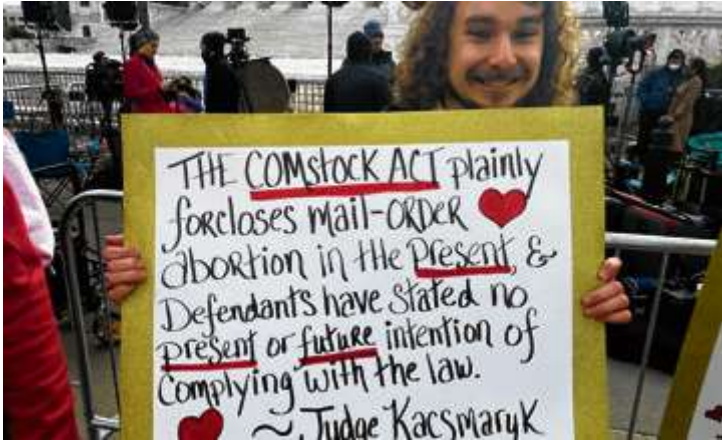 THE COMSTOCK ACT plainly
forcloses mail-ORDER
abortion in the Present &
Defendants have stated no
present or future intention of
Complying with the law.
~ Judge Kacsmaryk